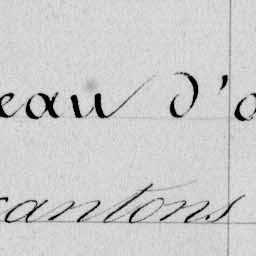 eau d'o
cantons